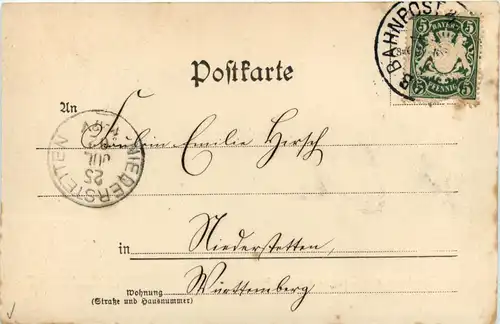 BAHNPOST
B
5 BAYERN 5
5 PFENNIG 5
Postkarte
An
Fräulein Emilie Hirsch
NIEDERSTETTEN
25
JUL
in Niederstetten,
Württemberg
Wohnung
(Straße und Hausnummer)